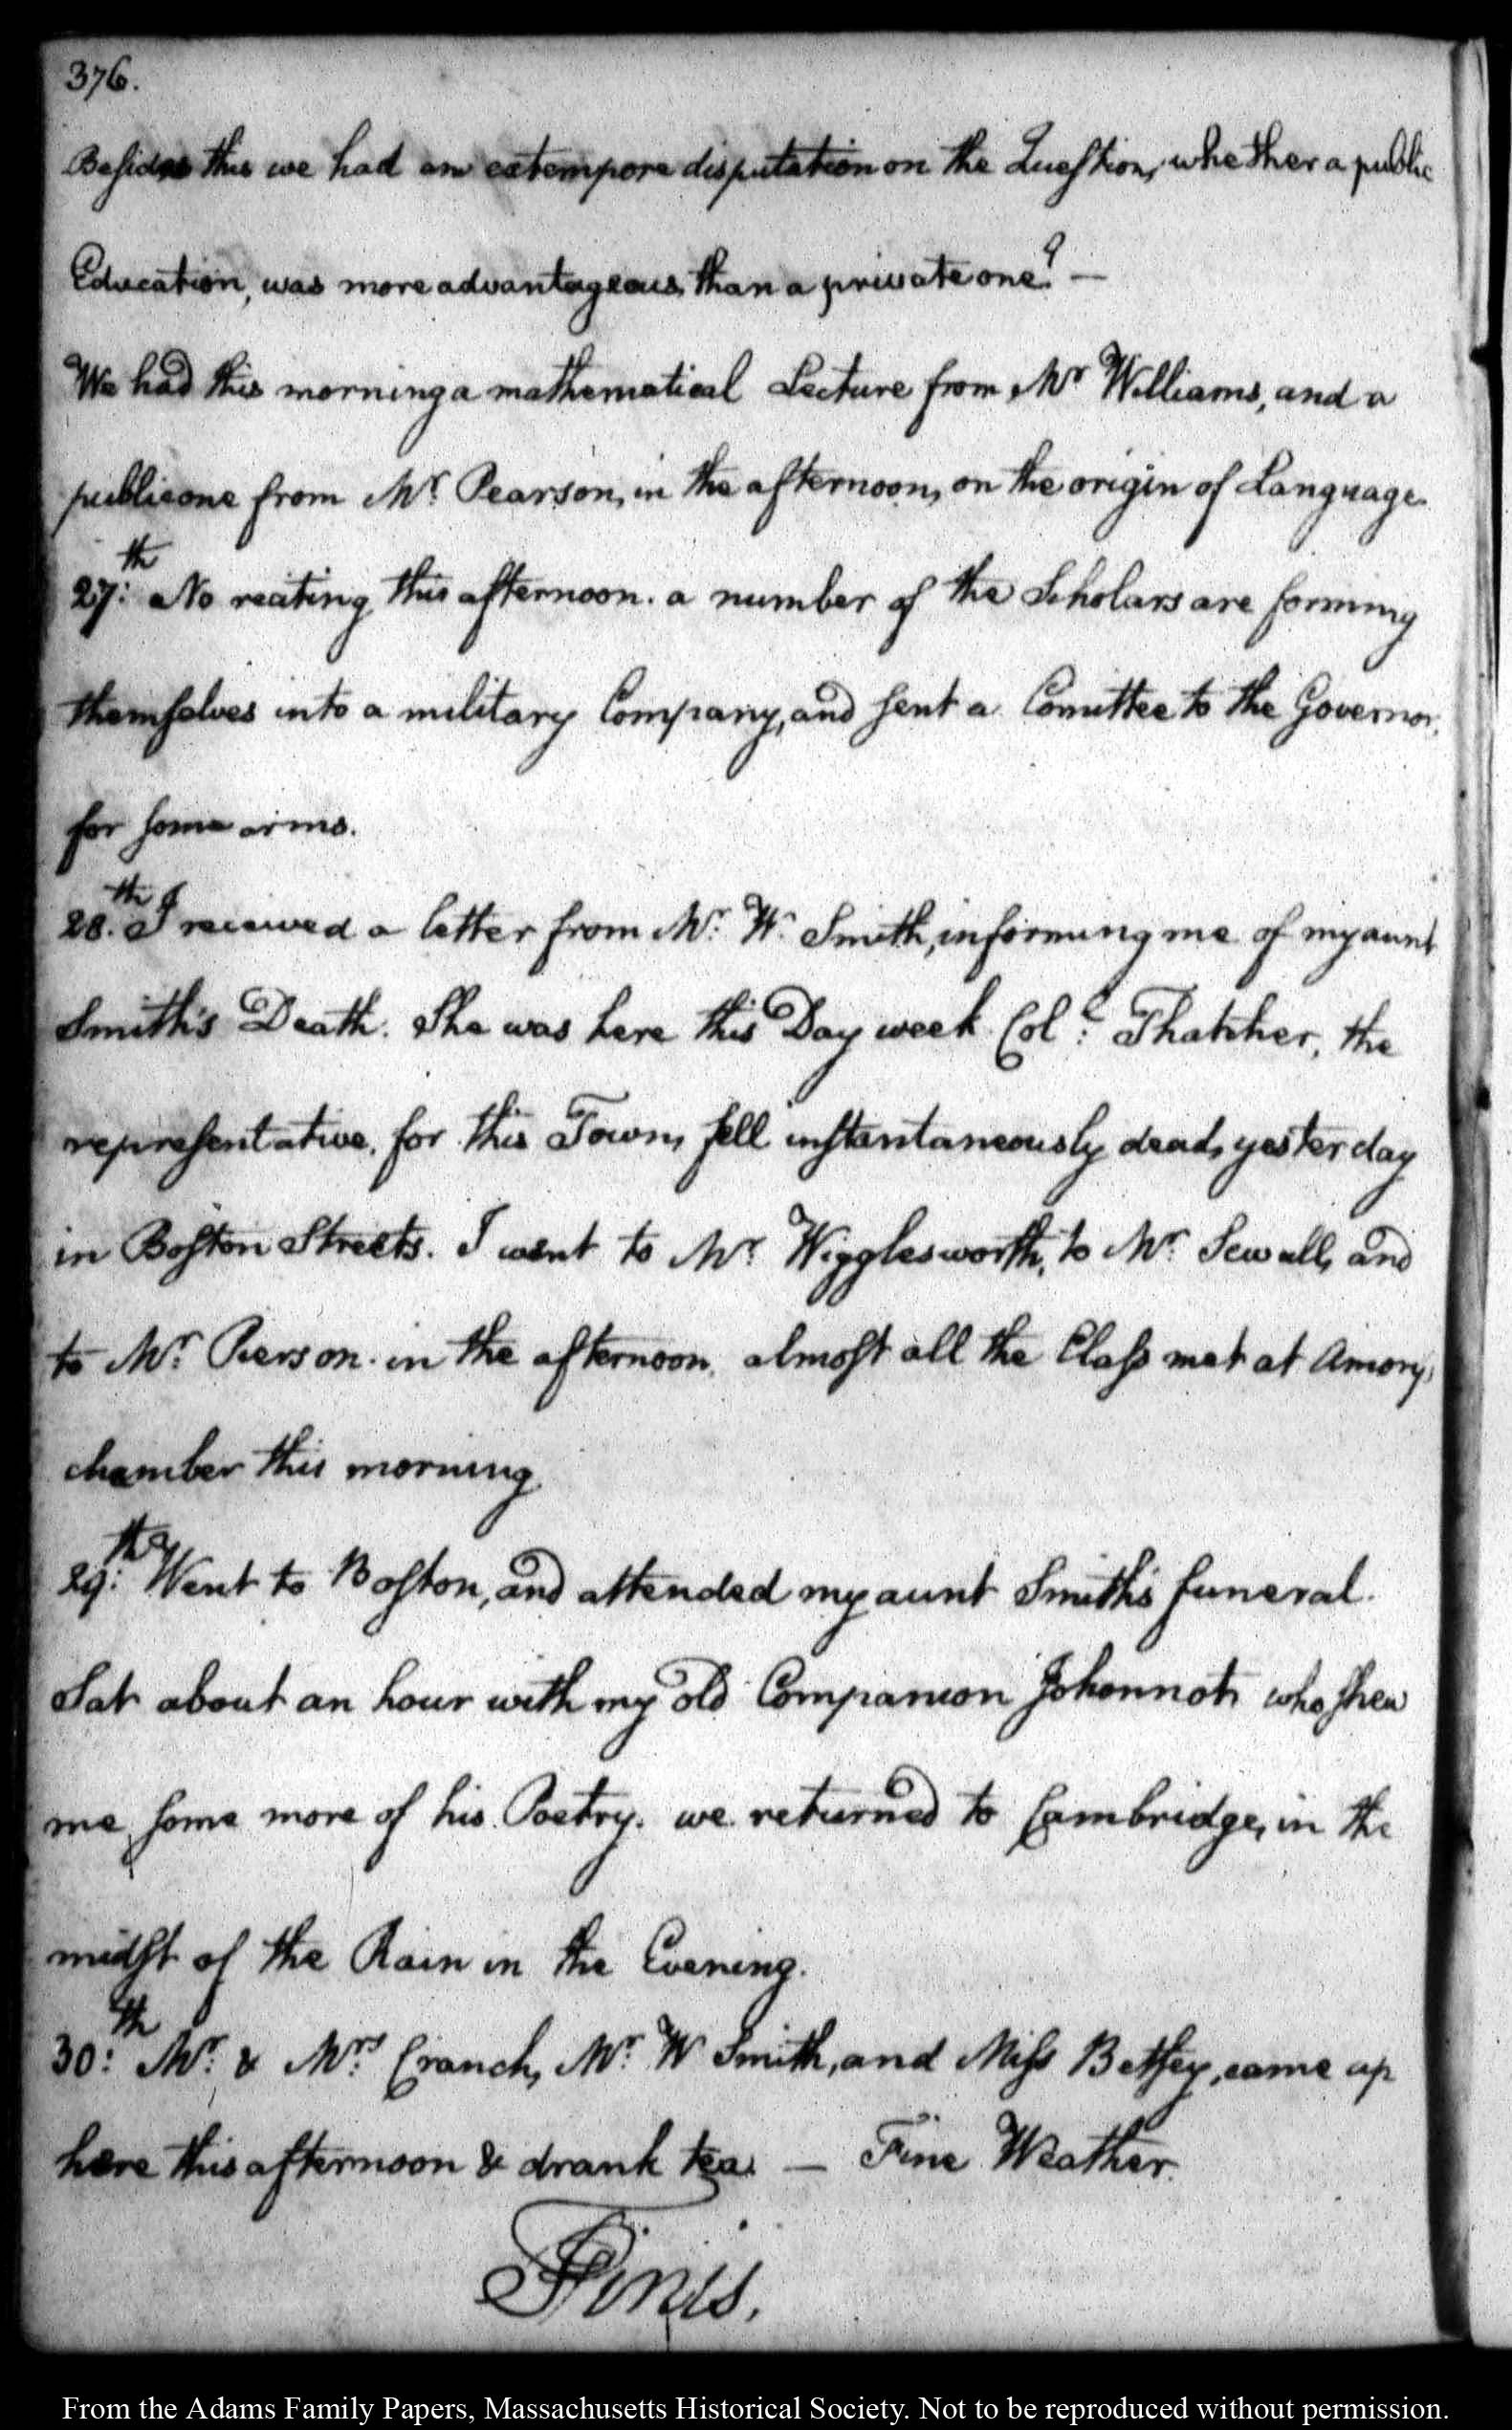 376.
Besides this we had an extempore disputation on the Question, whether a public
Education, was more advantageous, than a private one? —
We had this morning a mathematical Lecture from Mr Williams, and a
public one from Mr. Pearson, in the afternoon, on the origin of Language.
27:th No reciting this afternoon. a number of the Scholars are forming
themselves into a military Company, and sent a Comittee to the Governor,
for some arms.
28.th I received a letter from Mr. W. Smith, informing me of my aunt
Smith's Death. She was here this Day week. Col:l Thatcher, the
representative, for this Town, fell instantaneously dead, yesterday
in Boston Streets. I went to Mr. Wigglesworth, to Mr. Sewall, and
to Mr. Pierson. in the afternoon. almost all the Class met at Amory's
chamber this morning.
29:th Went to Boston, and attended my aunt Smith's funeral.
Sat about an hour with my old Companion Johonnot, who shew
me some more of his Poetry. we returned to Cambridge, in the
midst of the Rain in the Evening.
30:th Mr. & Mrs. Cranch, Mr. W Smith, and Miss Betsey, came up
here this afternoon & drank tea. — Fine Weather.
Finis.
From the Adams Family Papers, Massachusetts Historical Society. Not to be reproduced without permission.